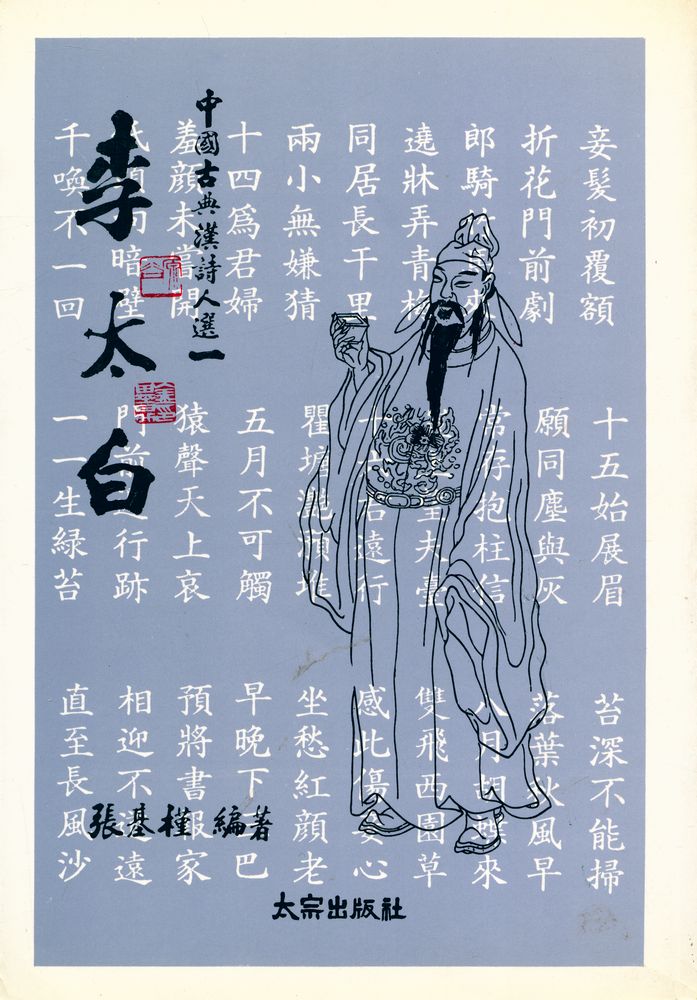 中國古典漢詩人選一
李太白
妾髮初覆額
折花門前劇
郎騎來
遶牀弄青梅
同居長干里
兩小無嫌猜
十四爲君婦
羞顔未嘗開
頭向暗壁
千喚不一回
十五始展眉
願同塵與灰
常存抱柱信
望夫臺
十六君遠行
瞿塘灩澦堆
五月不可觸
猿聲天上哀
門前行跡
一一生緑苔
苔深不能掃
落葉秋風早
八月胡蝶來
雙飛西園草
感此傷妾心
坐愁紅顔老
早晚下三巴
預將書報家
相迎不道遠
直至長風沙
張基槿 編著
太宗出版社